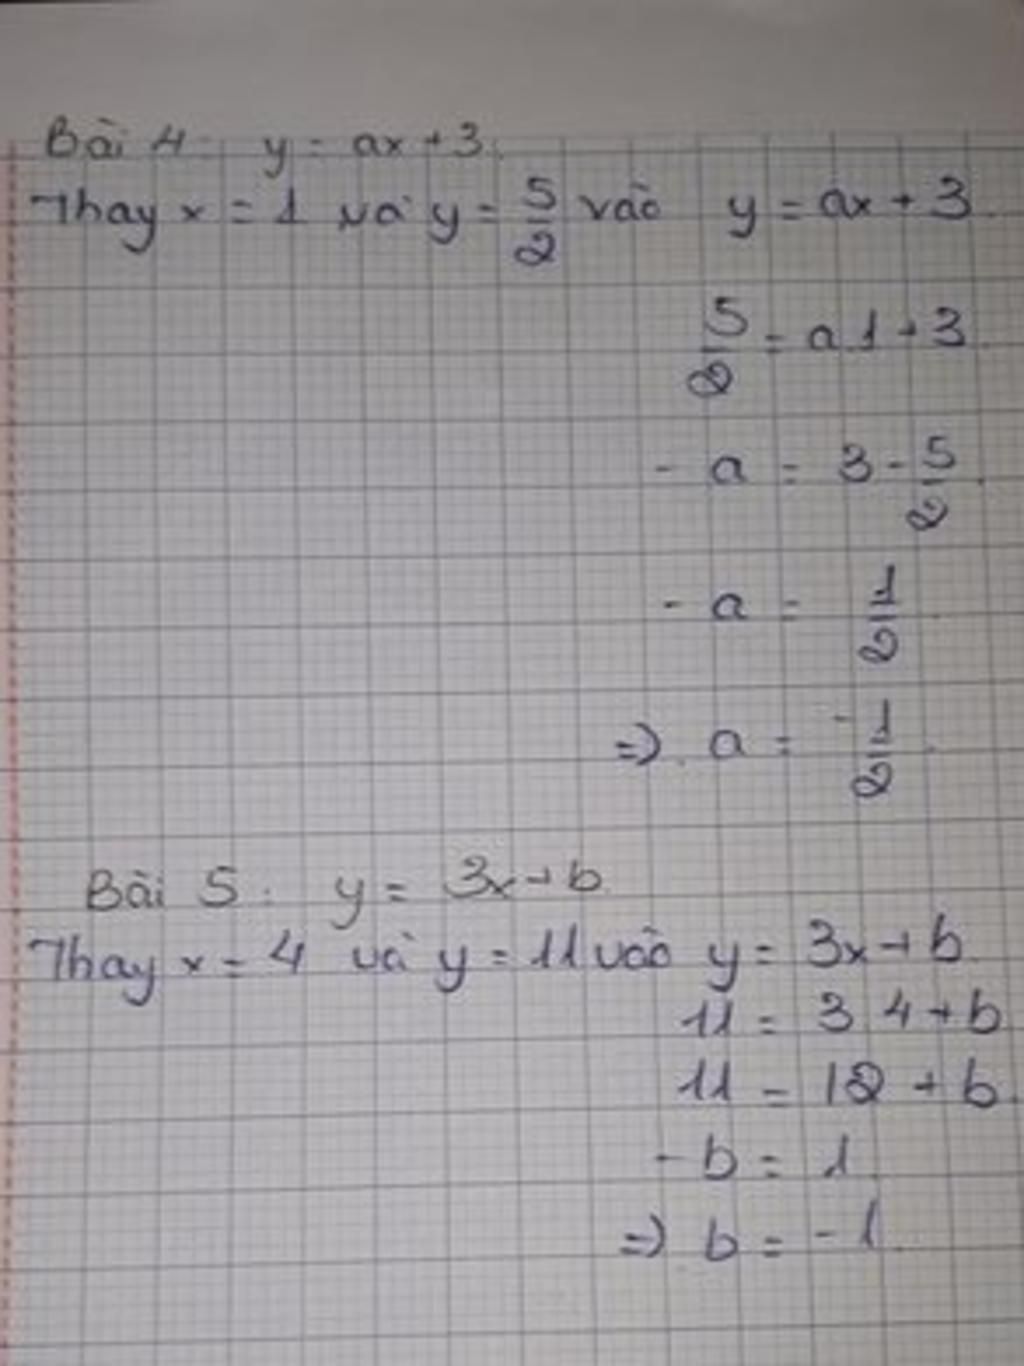 Bài 4: y = ax + 3
Thay x = 1 và y = 5/2 vào y = ax + 3
5/2 = a.1 + 3
- a = 3 - 5/2
- a = 1/2
=> a = -1/2
Bài 5: y = 3x + b
Thay x = 4 và y = 11 vào y = 3x + b
11 = 3.4 + b
11 = 12 + b
- b = 1
=> b = -1